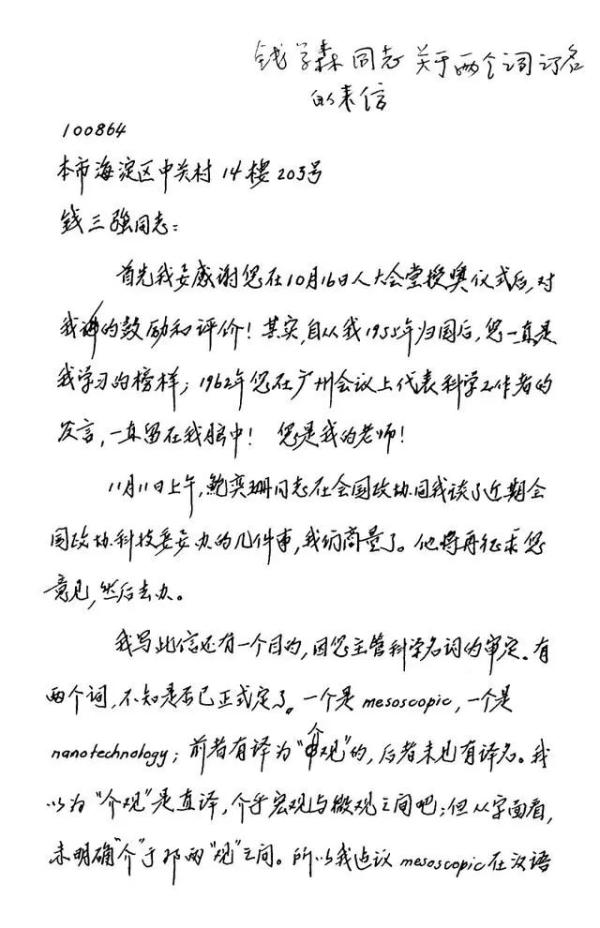 钱学森同志关于两个词订名
的来信
100864
本市海淀区中关村14楼203号
钱三强同志：
首先我要感谢您在10月16日人大会堂授奖仪式后，对
我讲的鼓励和评价！其实，自从我1955年归国后，您一直是
我学习的榜样；1962年您在广州会议上代表科学工作者的
发言，一直留在我脑中！ 您是我的老师！
11月11日上午，鲍奕珊同志在全国政协同我谈了近期全
国政协科技委要办的几件事，我们商量了。他将再征求您
意见，然后去办。
我写此信还有一个目的，因您主管科学名词的审定。有
两个词，不知是否已正式定了。一个是 mesoscopic，一个是
nanotechnology；前者有译为“介观”的，后者未见有译名。我
以为“介观”是直译，介乎宏观与微观之间吧；但从字面看，
未明确“介”于那两“观”之间。所以我建议 mesoscopic 在汉语